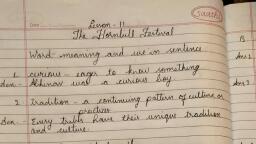 Date
Lesson - 11
The Hornbill Festival
Word - meaning and use in sentence
1. curious - eager to know something
Sen - Abhinav was a curious boy.
2. Tradition - a continuing pattern of culture or
practices
Sen - Every tribe have their unique tradition
and culture.
B
Ans 1
Ans 2